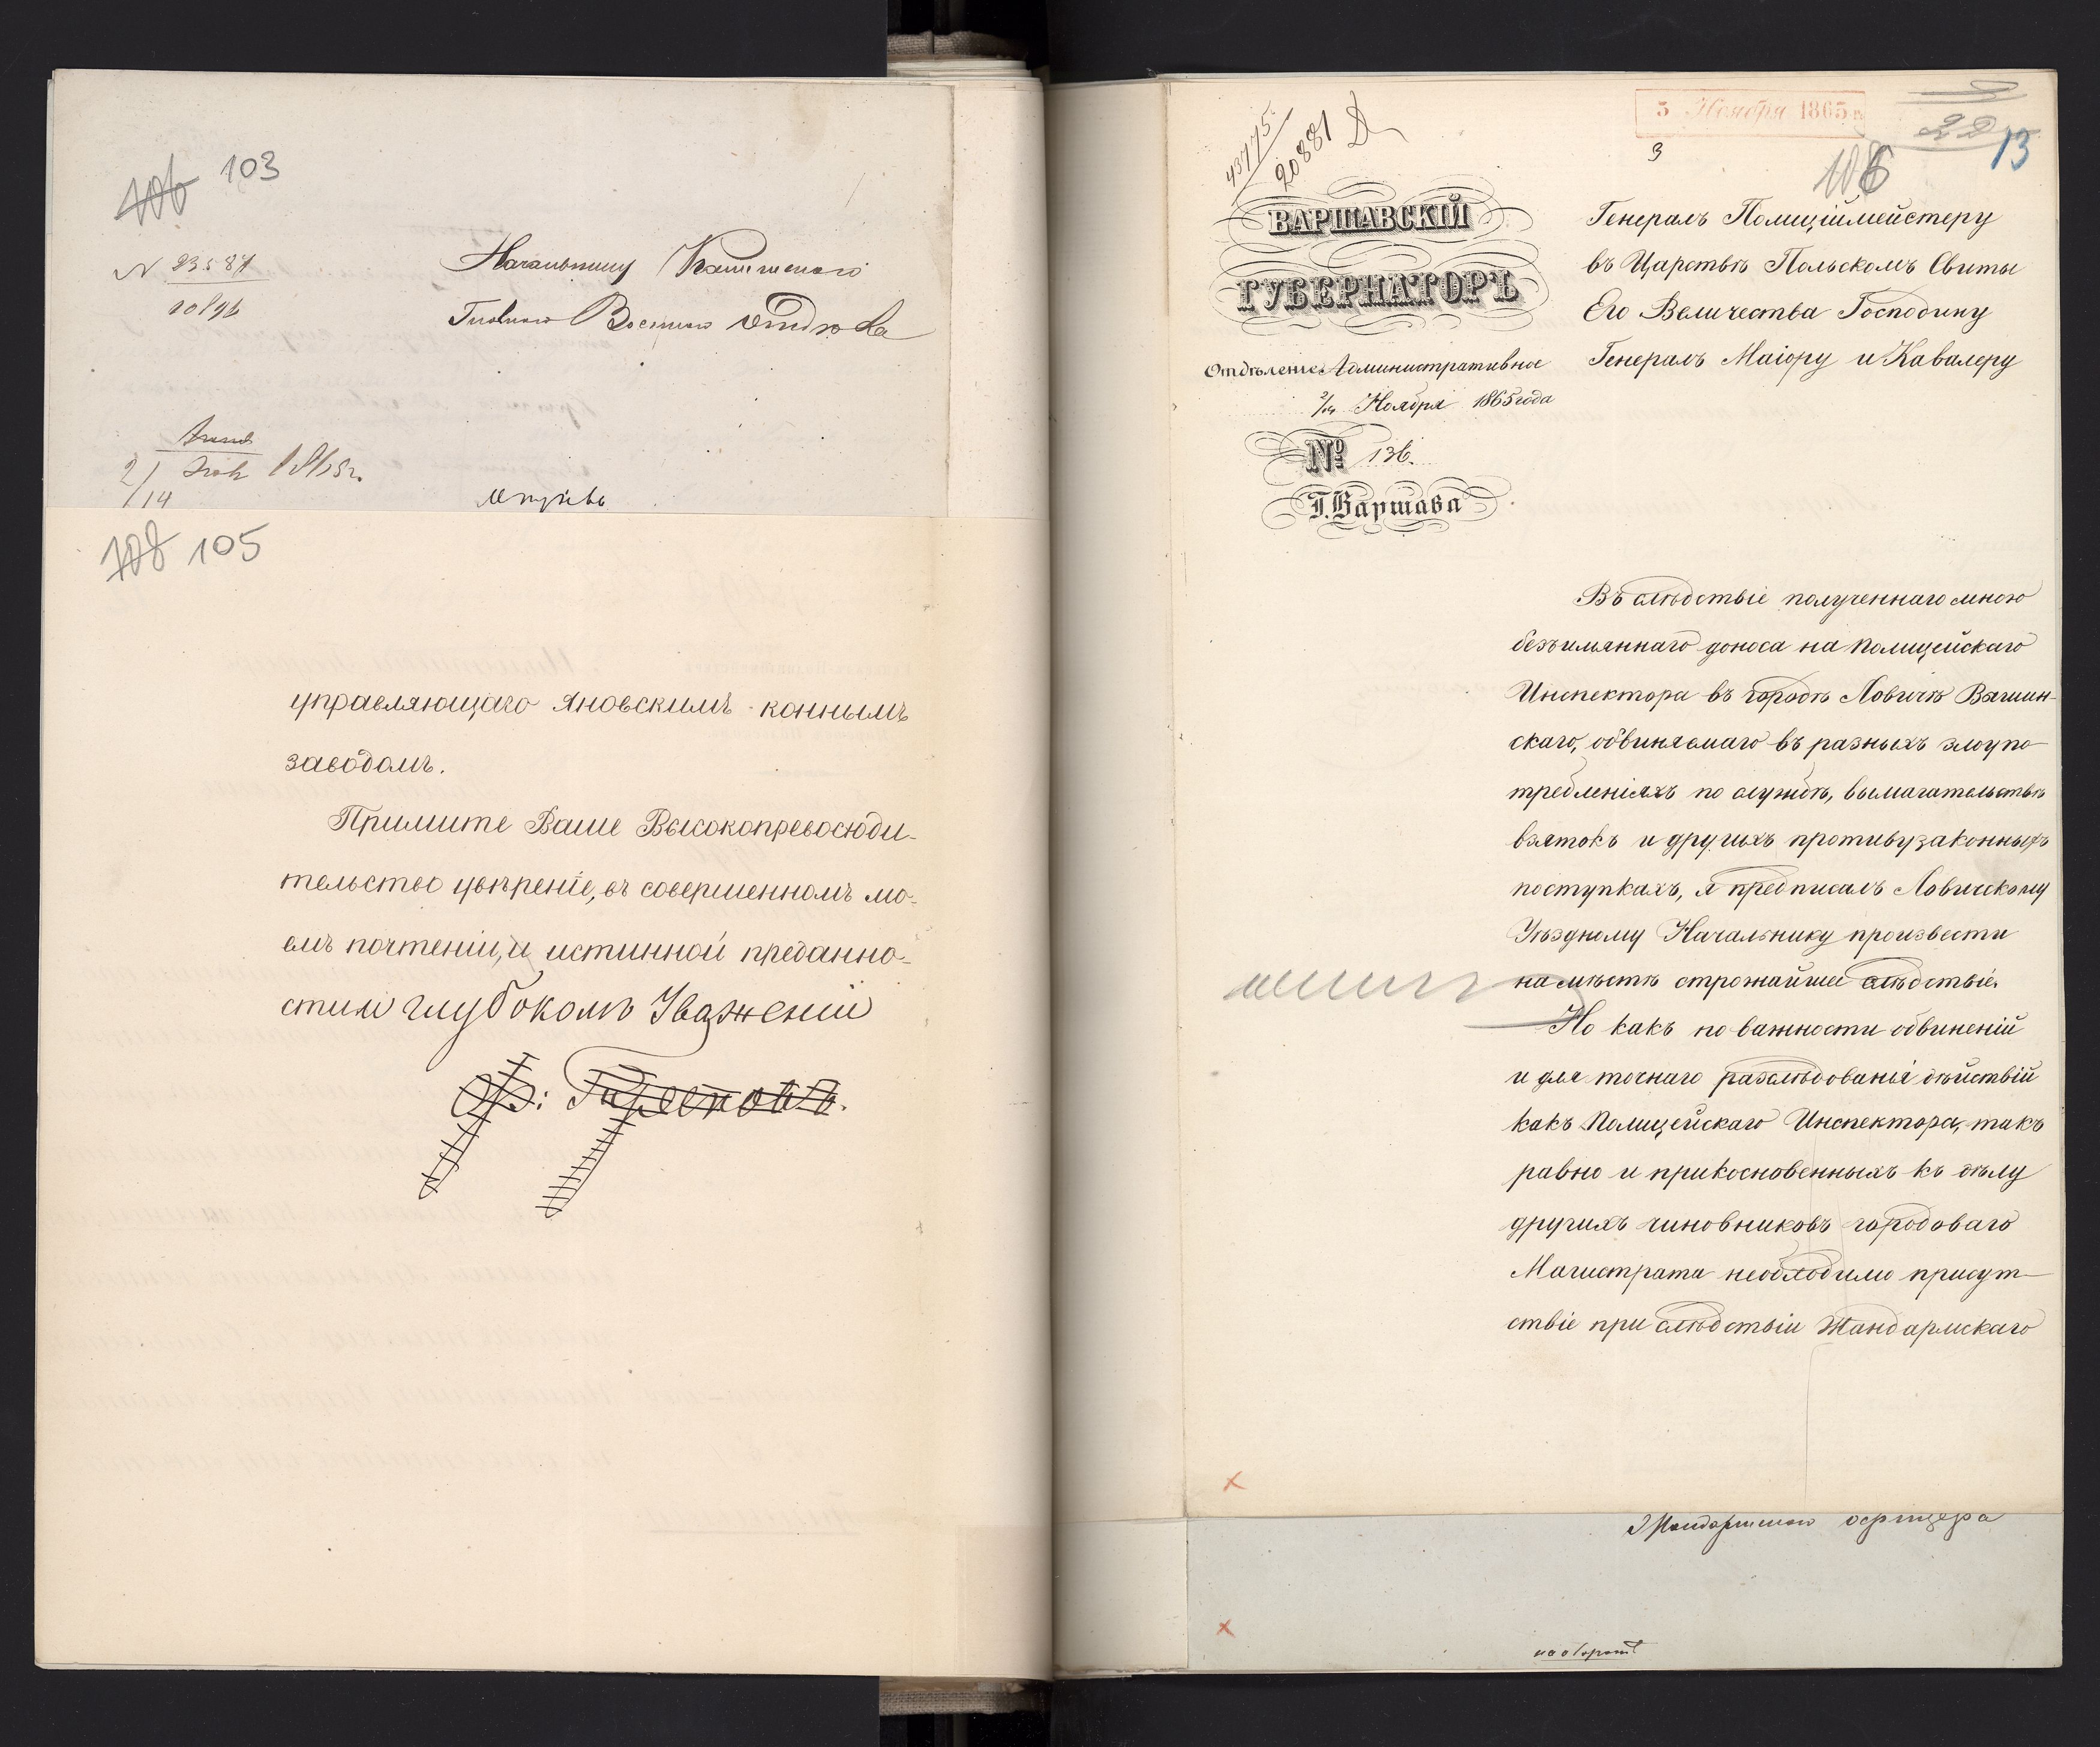 106 103
N 23587
10896
Начальнику Калишского
Главнаго Военнаго Отдѣла
2/14 1865 г.
108 105
управляющаго Яновскимъ коннымъ
заводомъ.
Примите Ваше Высокопревосходи-
тельство увѣреніе, въ совершенномъ мо-
емъ почтеніи, и истинной преданно-
сти и глубокомъ Уваженіи
43775.
20881 Д
3 Ноября 1865 г.
3
22
13
106
ВАРШАВСКІЙ
ГУБЕРНАТОРЪ
Отдѣленіе Административное
2/14 Ноября 1865 года
№ 136.
Г. Варшава
Генералъ Полиціймейстеру
въ Царствѣ Польскомъ Свиты
Его Величества Господину
Генералъ Маіору и Кавалеру
Въ слѣдствіе полученнаго мною
безъимяннаго доноса на Полицейскаго
Инспектора въ городѣ Ловичѣ Вагин-
скаго, обвиняемаго въ разныхъ злоупо-
требленіяхъ по службѣ, вымагательствѣ
взятокъ и другихъ противузаконныхъ
поступкахъ, я предписалъ Ловичскому
Уѣздному Начальнику произвести
на мѣстѣ строжайшее слѣдствіе.
Но какъ по важности обвиненій
и для точнаго разслѣдованія дѣйствій
какъ Полицейскаго Инспектора, такъ
равно и прикосновенныхъ къ дѣлу
другихъ чиновниковъ городоваго
Магистрата необходимо присут-
ствіе при слѣдствіи Жандармскаго
Жандармскаго офицера
на оборотѣ